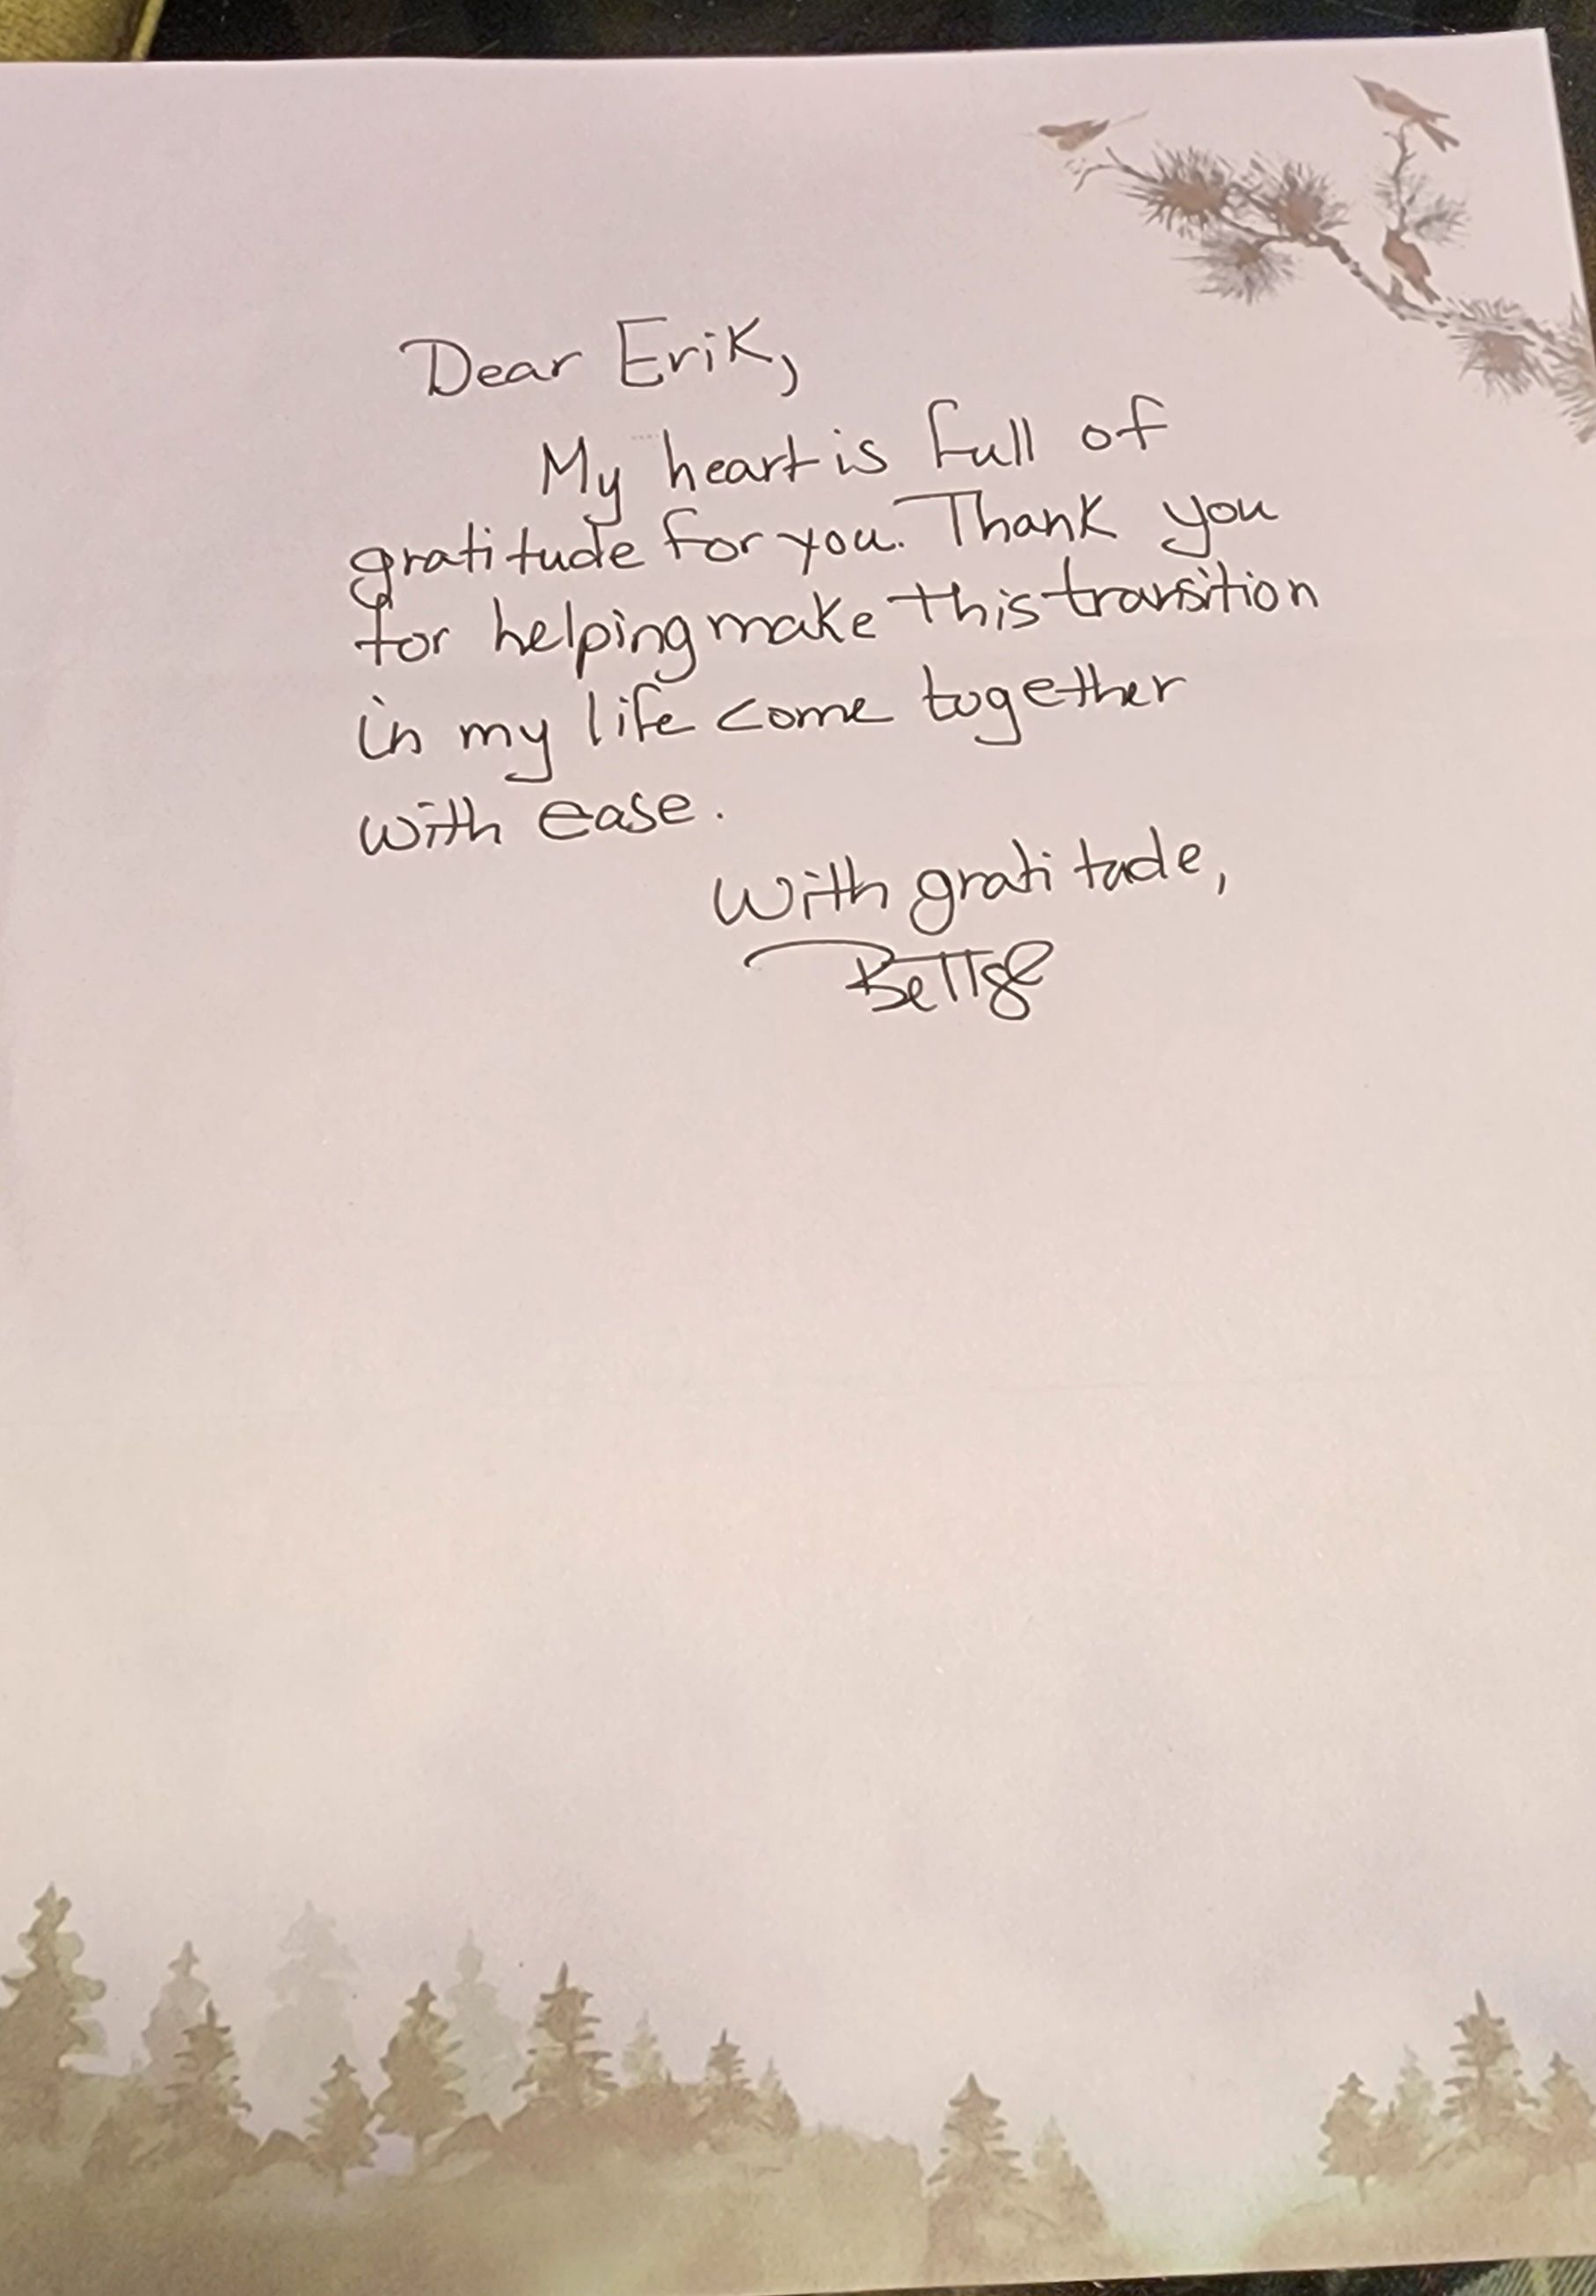 Dear Erik,
My heart is full of
gratitude for you. Thank you
for helping make this transition
in my life come together
with ease.
With gratitude,